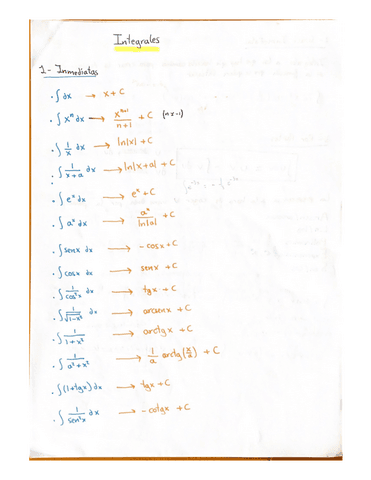 Integrales
1- Inmediatas
· ∫ dx → x + C
· ∫ xⁿ dx → xⁿ⁺¹/(n+1) + C (n≠-1)
· ∫ 1/x dx → ln|x| + C
· ∫ 1/(x+a) dx → ln|x+a| + C
· ∫ eˣ dx → eˣ + C
· ∫ aˣ dx → aˣ/ln|a| + C
· ∫ senx dx → -cosx + C
· ∫ cosx dx → senx + C
· ∫ 1/cos²x dx → tgx + C
· ∫ 1/√(1-x²) dx → arcsenx + C
· ∫ 1/(1+x²) → arctgx + C
· ∫ 1/(a²+x²) → 1/a arctg(x/a) + C
· ∫ (1+tgx) dx → tgx + C
· ∫ 1/sen²x dx → -cotgx + C